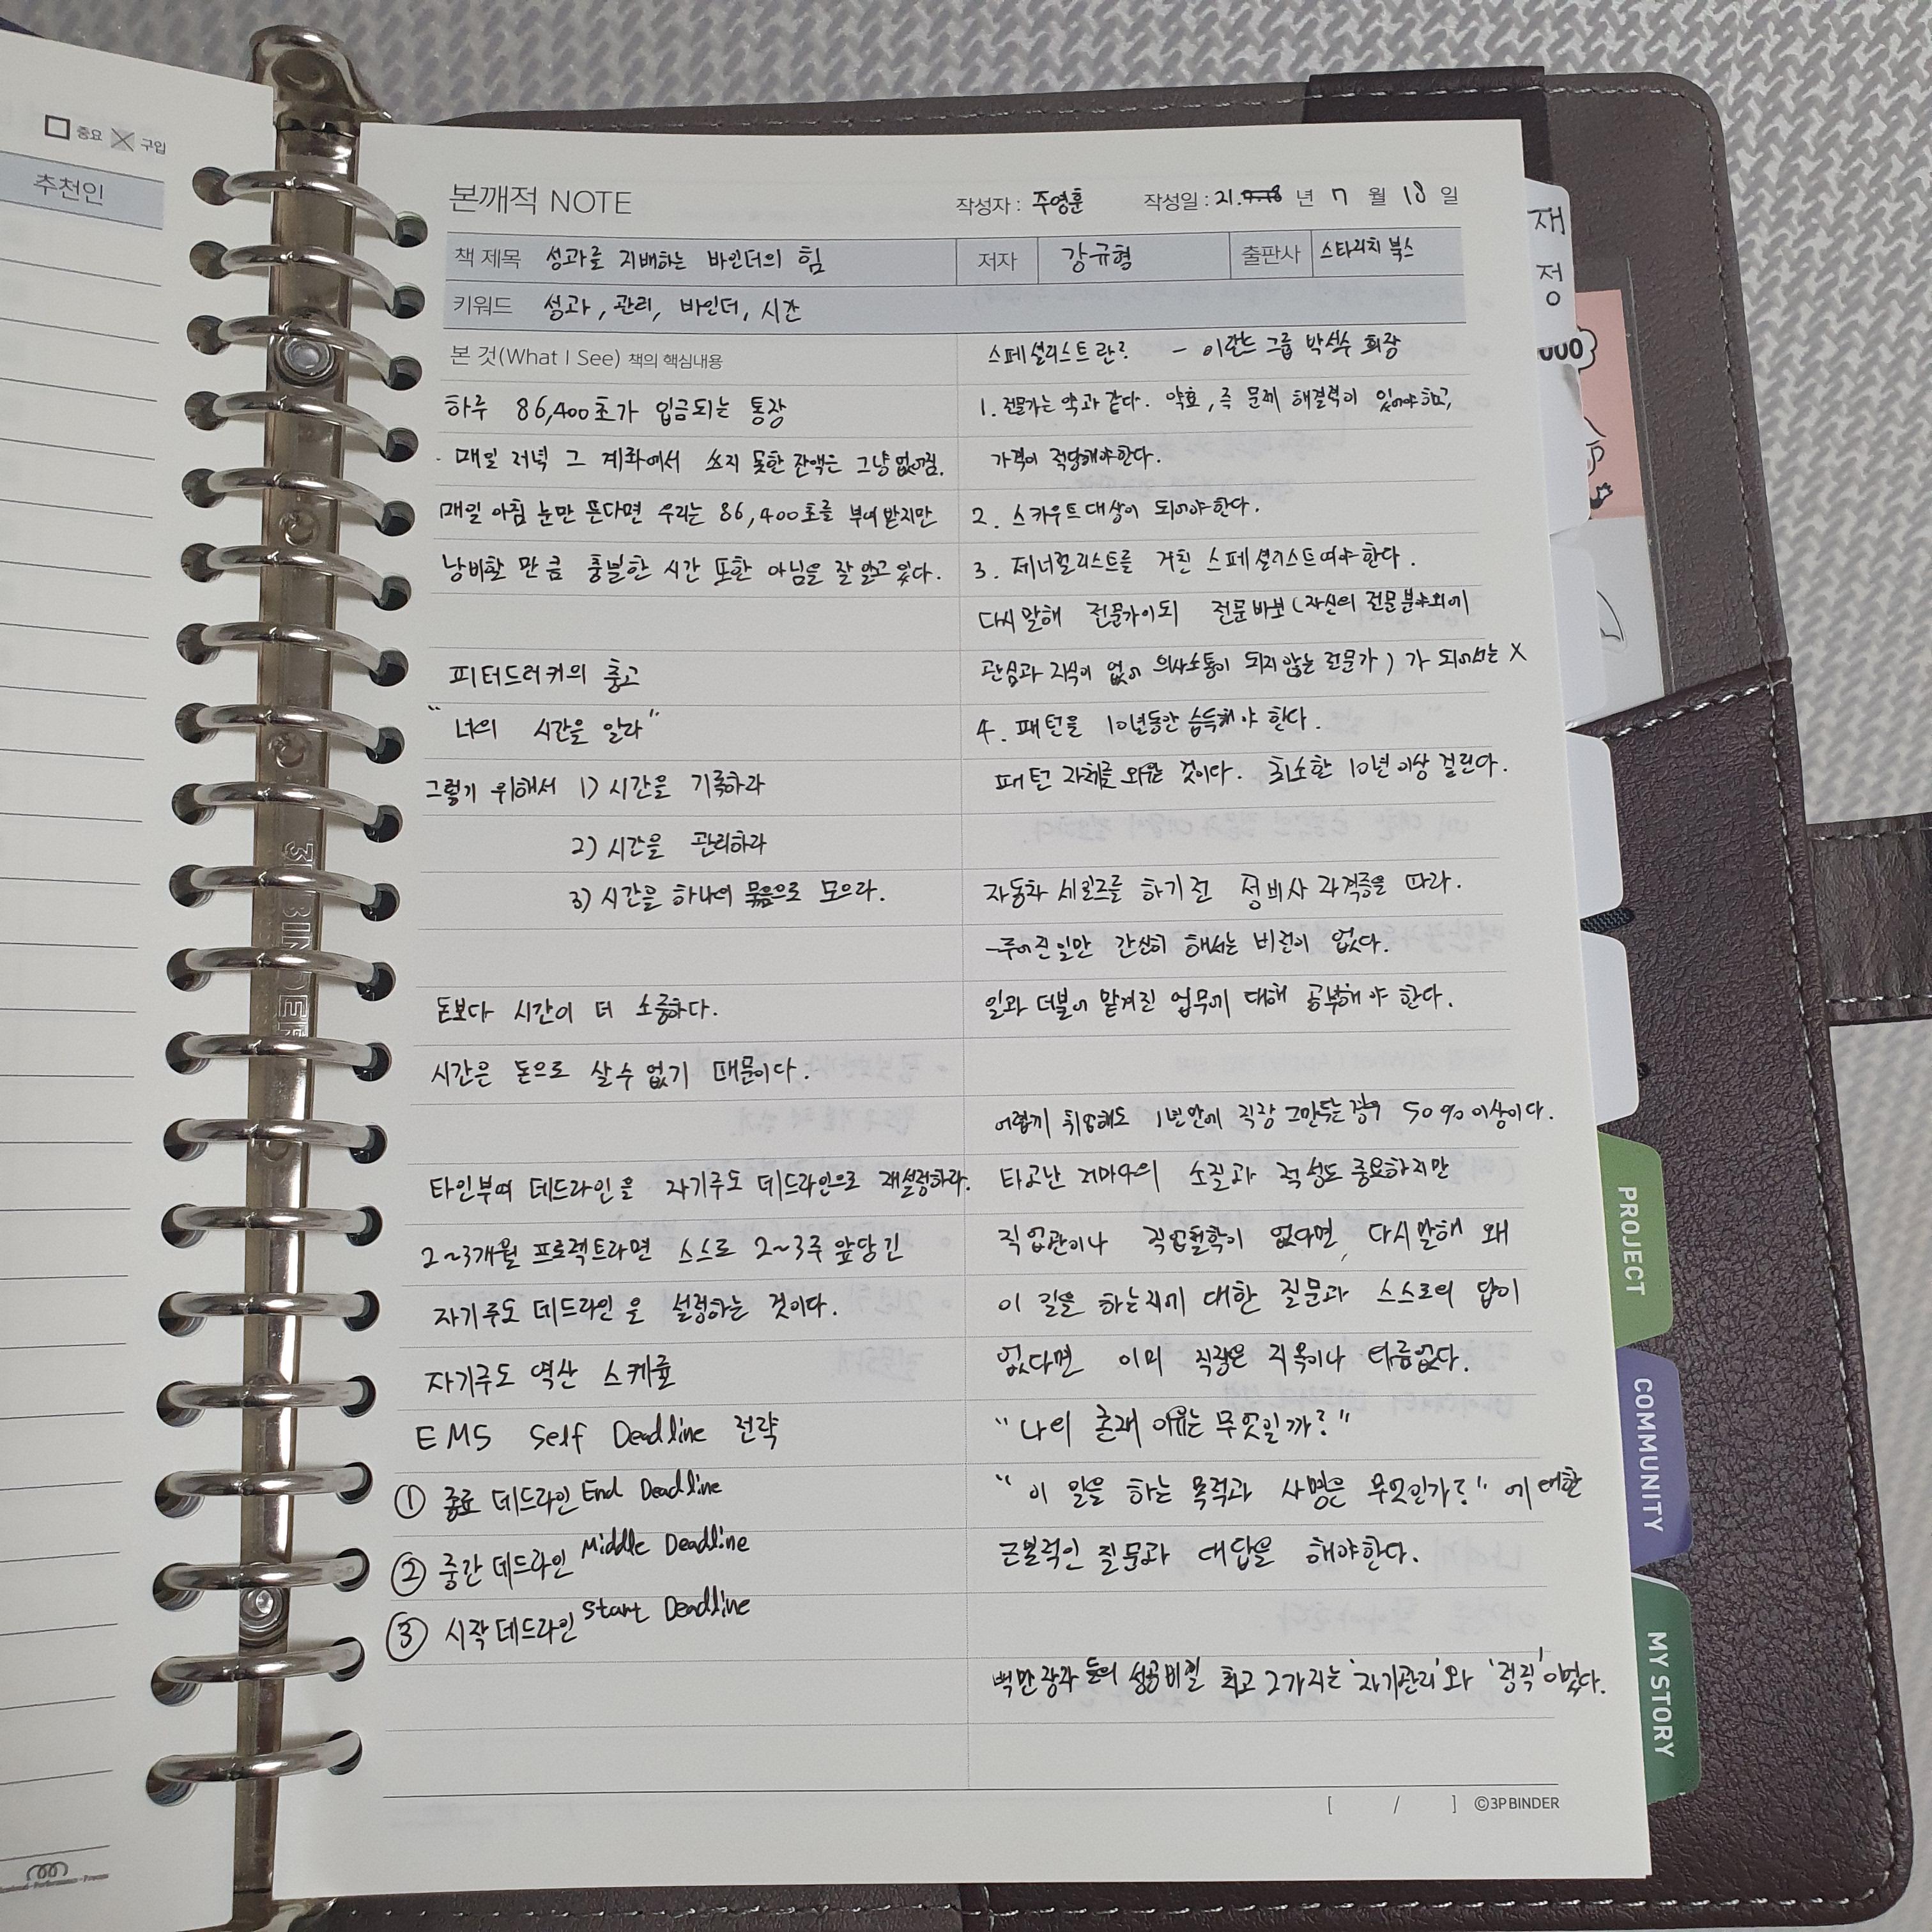 중요 구입
추천인
본깨적 NOTE
작성자 : 주영훈 작성일 : 21. 년 7 월 18 일
책 제목 성과를 지배하는 바인더의 힘 저자 강규형 출판사 스타리치 북스
키워드 성과, 관리, 바인더, 시간
본 것(What I See) 책의 핵심내용
하루 86,400초가 입금되는 통장
- 매일 저녁 그 계좌에서 쓰지 못한 잔액은 그냥 없어짐.
매일 아침 눈만 뜬다면 우리는 86,400초를 부여 받지만
낭비할 만큼 충분한 시간 또한 아님을 잘 알고 있다.
피터드러커의 충고
"너의 시간을 알라"
그렇기 위해서 1) 시간을 기록하라
2) 시간을 관리하라
3) 시간을 하나의 묶음으로 모으라.
돈보다 시간이 더 소중하다.
시간은 돈으로 살 수 없기 때문이다.
타인부여 데드라인을 자기주도 데드라인으로 재설정하라.
2~3개월 프로젝트라면 스스로 2~3주 앞당긴
자기주도 데드라인을 설정하는 것이다.
자기주도 역산 스케쥴
EMS Self Deadline 전략
① 종료 데드라인 End Deadline
② 중간 데드라인 Middle Deadline
③ 시작 데드라인 Start Deadline
스페셜리스트란? - 이랜드 그룹 박성수 회장
1. 전문가는 약과 같다. 약효, 즉 문제 해결력이 있어야 하고,
가격이 적당해야한다.
2. 스카우트대상이 되어야한다.
3. 제너럴리스트를 거친 스페셜리스트여야한다.
다시 말해 전문가이되 전문바보(자신의 전문분야외에
관심과 지식이 없어 의사소통이 되지 않는 전문가)가 되어서는 X
4. 패턴을 10년동안 습득해야 한다.
패턴 자체를 외우는 것이다. 최소한 10년이상 걸린다.
자동차 세일즈를 하기전 정비사 자격증을 따라.
-주어진일만 간신히 해서는 비전이 없다.
일과 더불어 맡겨진 업무에 대해 공부해야 한다.
어렵게 취업해도 1년안에 직장 그만두는 경우 50%이상이다.
타고난 저마다의 소질과 적성도 중요하지만
직업관이나 직업철학이 없다면, 다시말해 왜
이 일을 하는지에 대한 질문과 스스로의 답이
없다면 이미 직장은 지옥이나 다름없다.
"나의 존재 이유는 무엇일까?"
"이 일을 하는 목적과 사명은 무엇인가?"에 대한
근본적인 질문과 대답을 해야한다.
백만장자들의 성공비밀 최고 2가지는 '자기관리'와 '정직'이었다.
[ / ] ©3P BINDER
재
정
000
PROJECT
COMMUNITY
MY STORY
3P BINDER